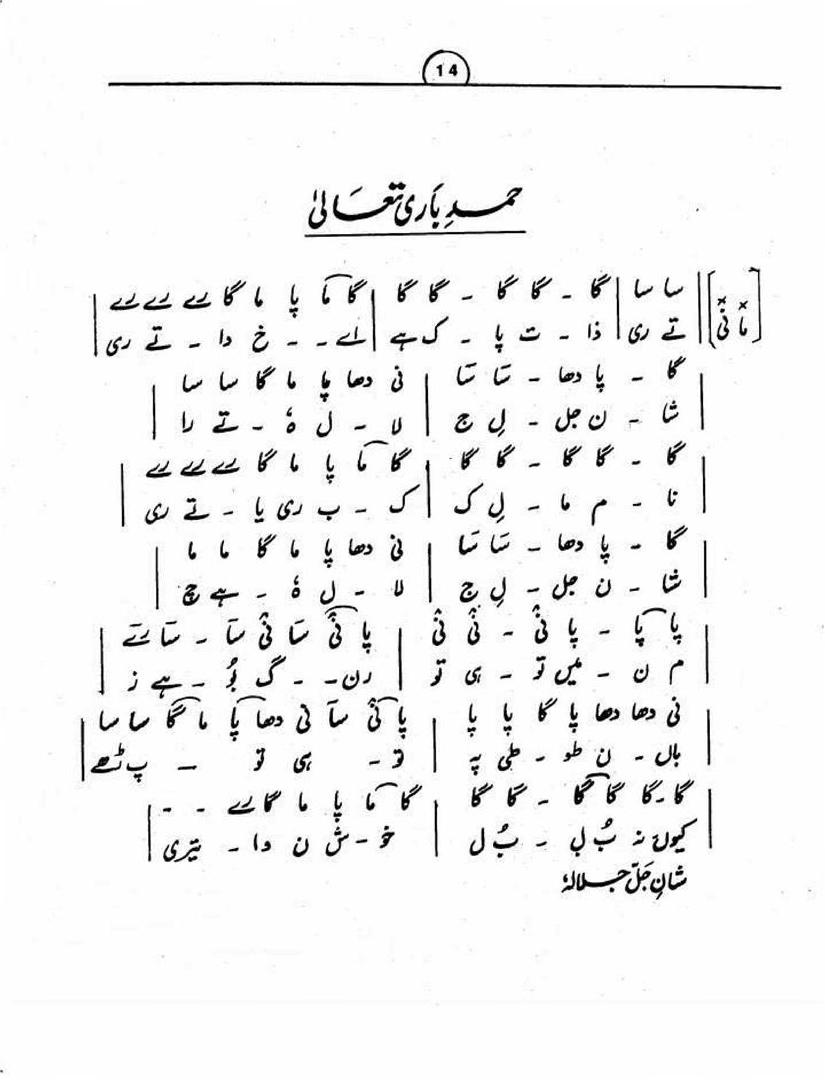 14
حمدِ باری تعالیٰ
[مٓا نیٓ] || سا سا | گا ۔ گا گا ۔ گا گا | گا ما پا ما گا رے رے رے |
تے ری | ذا ۔ ت پا ۔ ک ہے | اے ۔ ۔ خ دا ۔ تے ری |
| گا ۔ پا دھا ۔ سَا سَا | نی دھا پا ما گا سا سا |
| شا ۔ ن جل ۔ لِ ج | لا ۔ ل ہٗ ۔ تے را |
| گا ۔ گا گا ۔ گا گا | گا ما پا ما گا رے رے رے |
| نا ۔ م ما ۔ لِ ک | ک ۔ ب ری یا ۔ تے ری |
| گا ۔ پا دھا ۔ سَا سَا | نی دھا پا ما گا ما ما |
| شا ۔ ن جل ۔ لِ ج | لا ۔ ل ہٗ ۔ ہے چ |
| پا پا ۔ پا نیٛ ۔ نیٛ نیٛ | پا نیٛ سَا نیٛ سَا ۔ سَا رےَ |
| م ن ۔ میں تو ۔ ہی تو | رن ۔ ۔ گ بُو ۔ ہے ز |
| نی دھا دھا پا گا پا پا | پا نیٛ سَا نی دھا پا ما گا سا سا |
| باں ۔ ن طو ۔ طی پہ | تو ۔ ہی تو ۔ پ ٹھے |
| گا ۔ گا گا گا ۔ گا گا | گا ما پا ما گا رے ۔ ۔ |
| کیوں نہ بُ لِ ۔ بُ ل | خو ۔ ش ن وا ۔ تیری |
شانِ جَلّ جلالہٗ